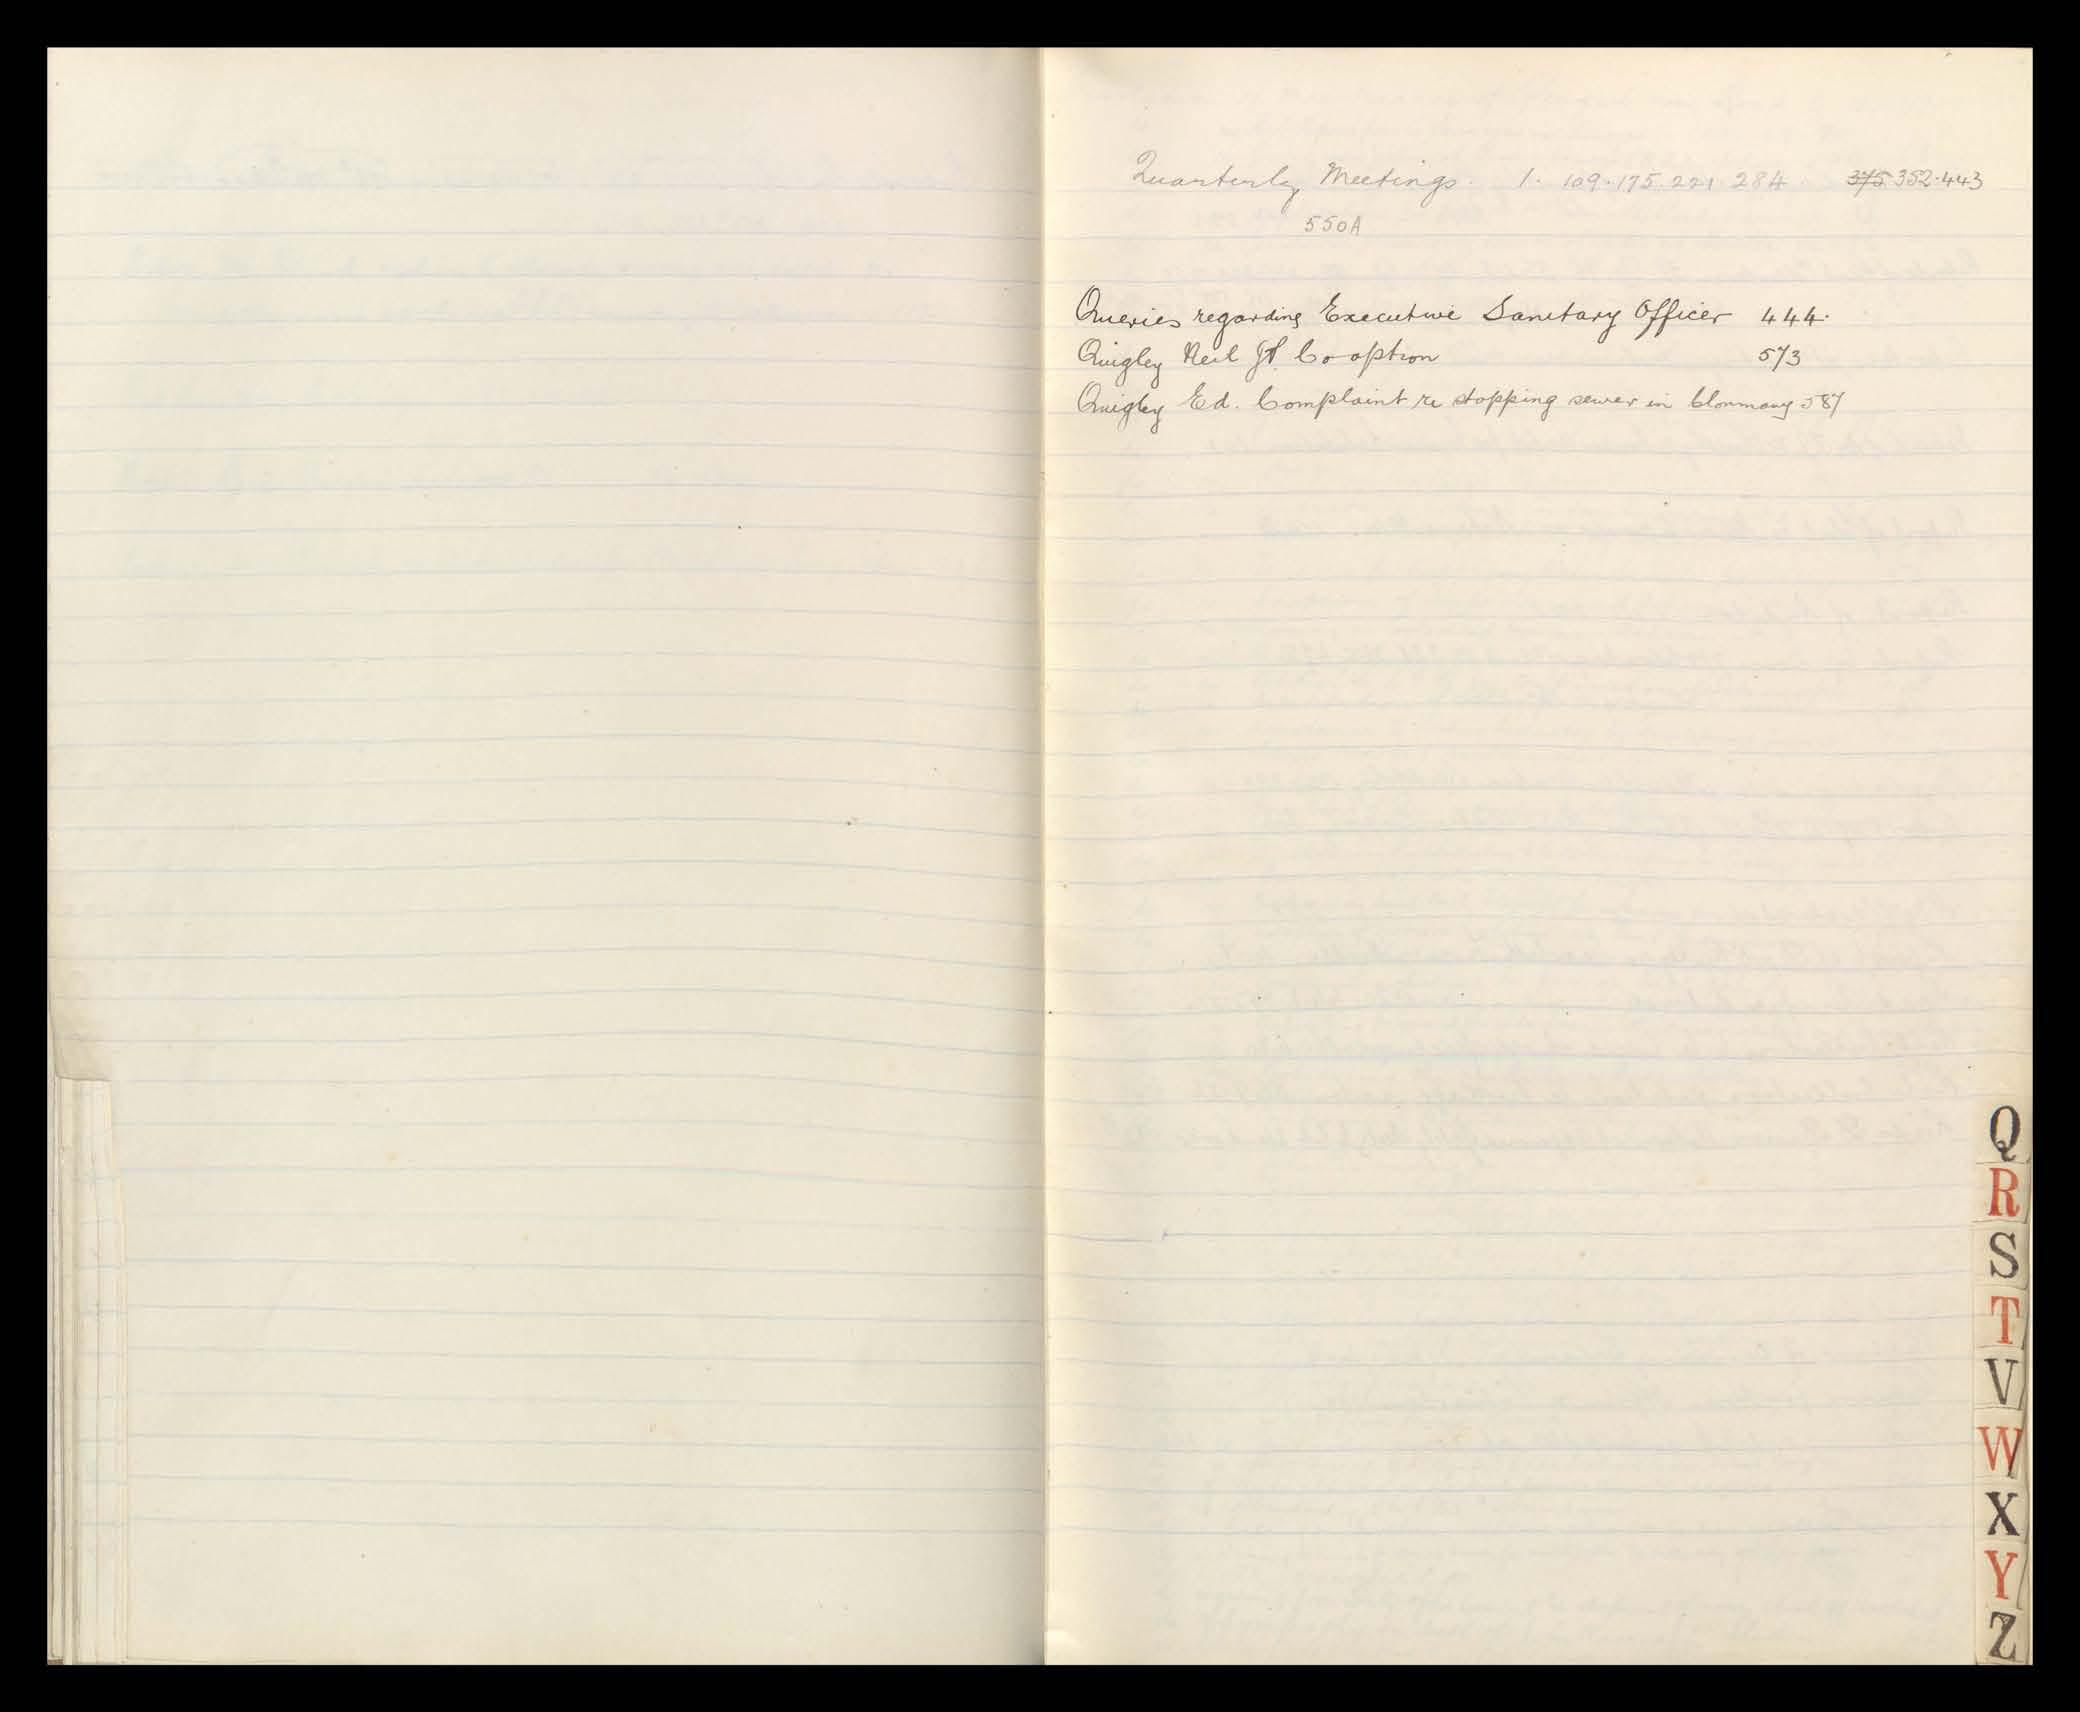 Quarterly Meetings. 1. 109. 175. 221 284. 375 352. 443
550A
Queries regarding Executive Sanitary Officer 444.
Quigley Neil Co-option 573
Quigley Ed. Complaint re stopping sewer in Clonmany 587
Q
R
S
T
V
W
X
Y
Z